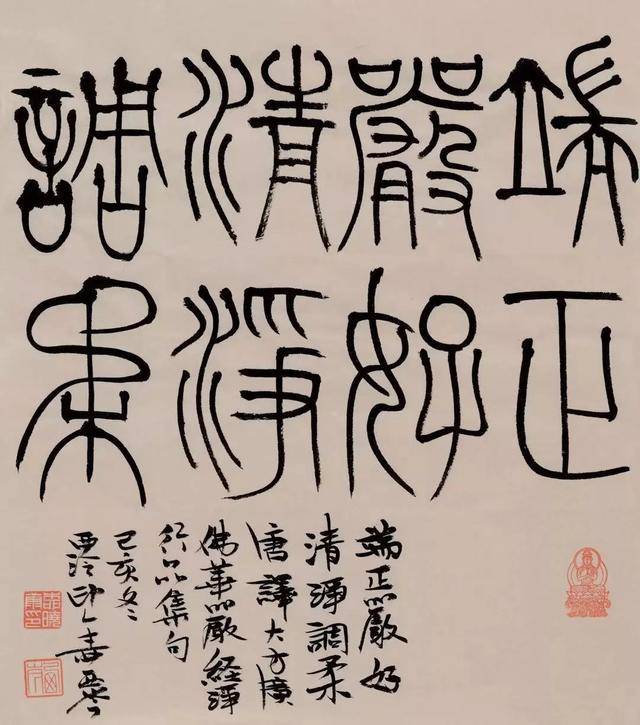 端正
嚴好
清淨
調柔
端正嚴好
清淨調柔
唐譯大方廣
佛華嚴經淨
行品集句
己亥冬
西泠印